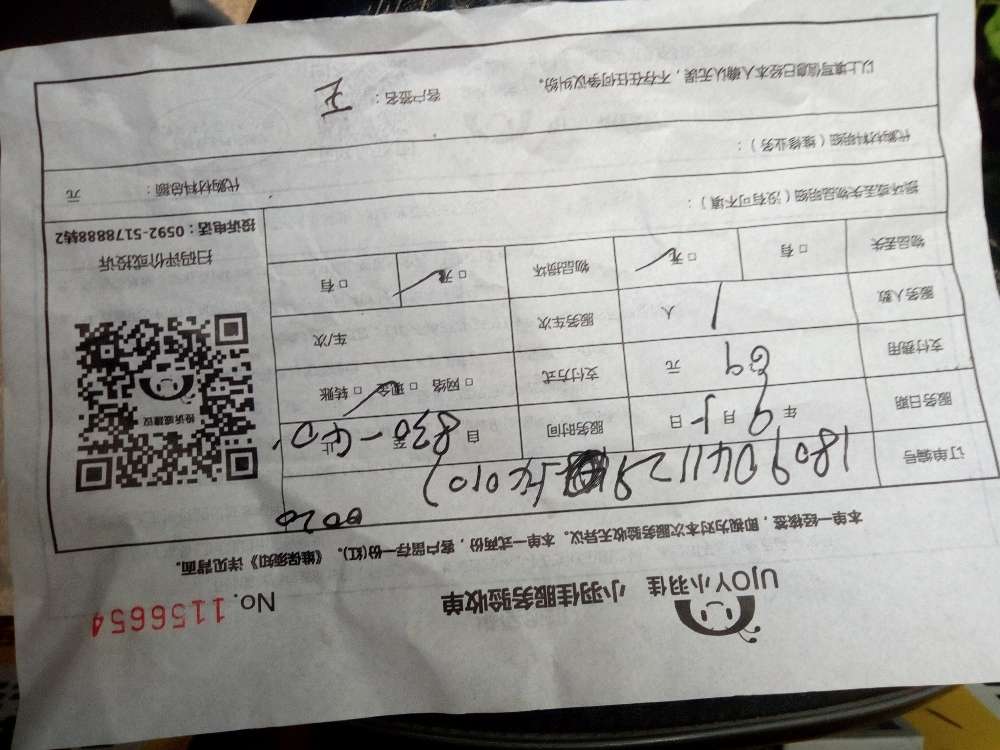 UJOY小羽佳 小羽佳服务验收单 No. 1156654
本单一经接签，即视为对本次服务验收无异议。本单一式两份，客户留存一份(红)。《维保须知》详见背面。
订单编号 1809041129
服务日期 年 9 月 5 日 服务时间 自 830 至 止
支付费用 69 元 支付方式 □ 网络 □ 现金 □ 转账
服务人数 1 人 服务车次 车/次
物品丢失 □ 有 □ 无 物品损坏 □ 无 □ 有
投诉或建议
扫码评价或投诉
投诉电话：0592-5178888转2
损坏或丢失物品明细（没有可不填）：
代购材料明细（维修业务）： 代购材料总额： 元
以上填写信息已经本人确认无误，不存在任何争议纠纷。 客户签名： 王